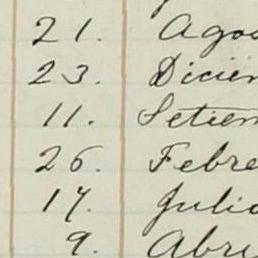 21. Agos
23. Dicien
11. Setien
26. Febre
17. Julio
9. Abri